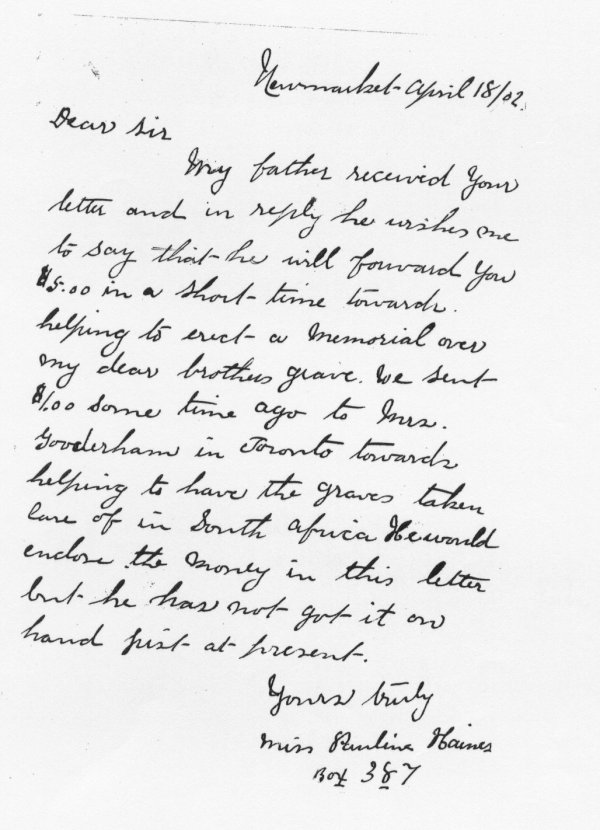 Newmarket April 18/02.
Dear Sir
My father received Your
letter and in reply he wishes me
to say that he will forward You
$5.00 in a short time towards.
helping to erect a Memorial over
my dear brothers grave. We sent
$1.00 some time ago to Mrs.
Gooderham in Toronto towards
helping to have the graves taken
care of in South Africa He would
enclose the money in this letter
but he has not got it on
hand just at present.
Yours truly
Miss Pauline Haines
Box 387